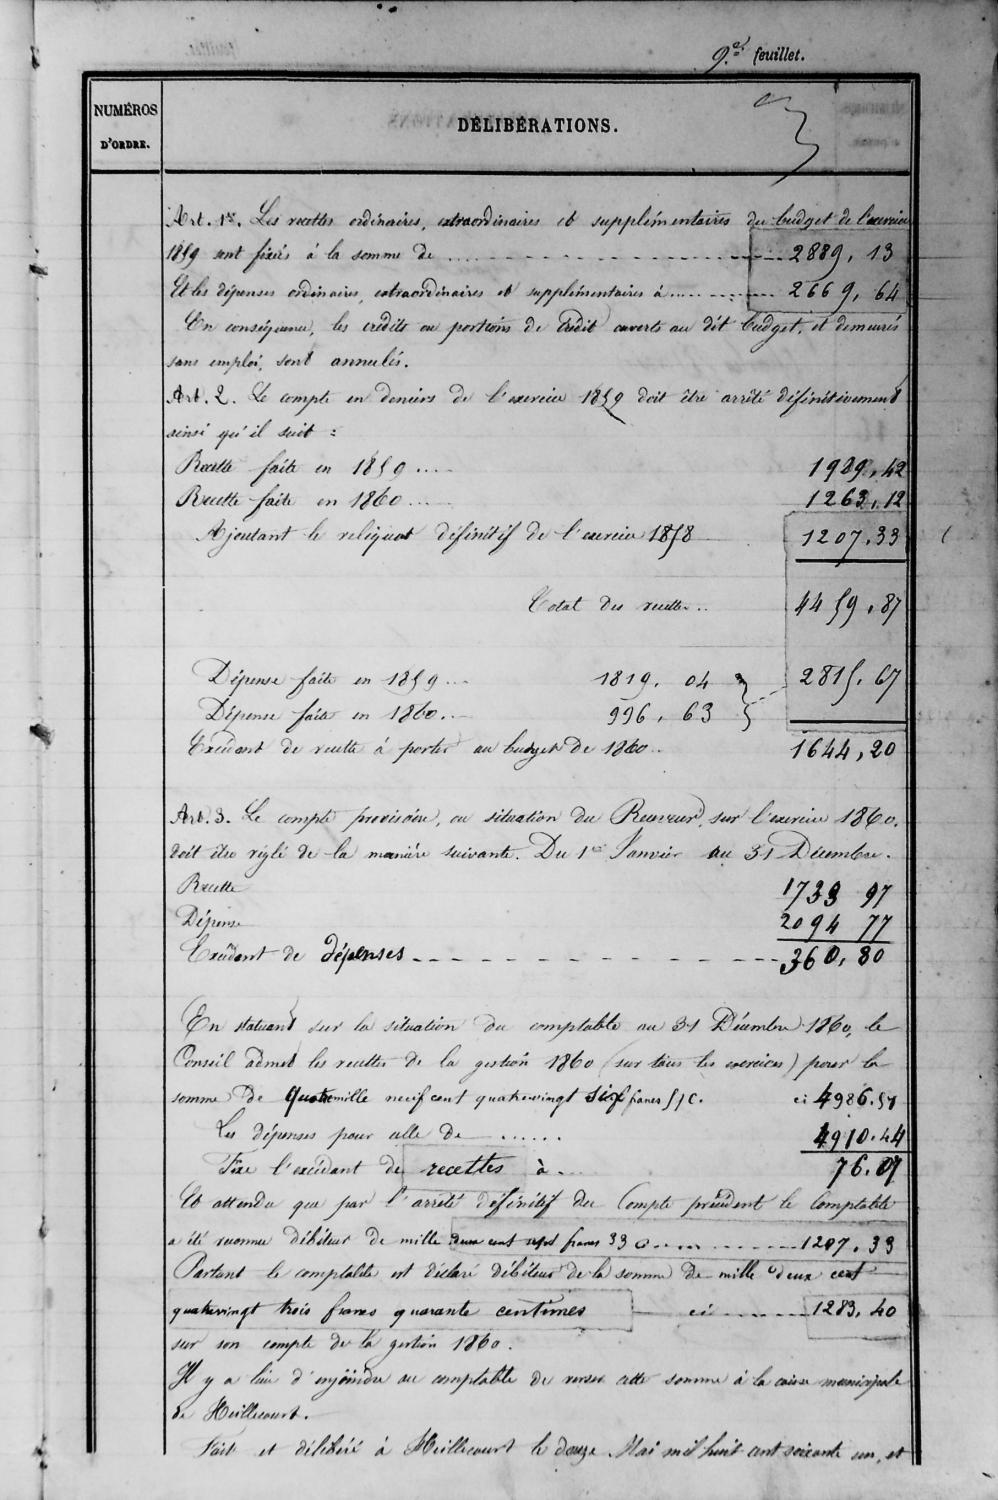 9.e feuillet.
NUMÉROS
D'ORDRE.
DÉLIBÉRATIONS.
Art. 1er. Les recettes ordinaires, extraordinaires et supplémentaires du budget de l'exercice
1859 sont fixées à la somme de ... 2889, 13
Et les dépenses ordinaires, extraordinaires et supplémentaires à ... 2669, 64
En conséquence, les crédits ou portions de crédit ouverts au dit budget, et demeurés
sans emploi, sont annulés.
Art. 2. Le compte en deniers de l'exercice 1859 doit être arrêté définitivement
ainsi qu'il suit :
Recette faite en 1859 .... 1989, 42
Recette faite en 1860 .... 1263, 12
Ajoutant le reliquat définitif de l'exercice 1858 1207, 33
Total des recettes .. 4459, 87
Dépense faite en 1859 ... 1819, 04 } 2815, 67
Dépense faite en 1860 ... 996, 63
Excédant de recette à porter au budget de 1860 .. 1644, 20
Art. 3. Le compte provisoire, ou situation du Receveur, sur l'exercice 1860,
doit être réglé de la manière suivante. Du 1er Janvier au 31 Décembre.
Recette 1733 97
Dépense 2094 77
Excédant de dépenses 360, 80
En statuant sur la situation du comptable au 31 Décembre 1860, le
Conseil admet les recettes de la gestion 1860 (sur tous les exercices) pour la
somme de quatre mille neuf cent quatrevingt six francs 51 c. ci 4986.51
Les dépenses pour celle de ...... 4910.44
Fixe l'excédant de recettes à ... 76.07
Et attendu que par l'arrêté définitif du Compte précédent le Comptable
a été reconnu débiteur de mille deux cent sept francs 33 c ... 1207, 33
Partant le comptable est déclaré débiteur de la somme de mille deux cent
quatrevingt trois francs quarante centimes ci ... 1283, 40
sur son compte de la gestion 1860.
Il y a lieu d'enjoindre au comptable de verser cette somme à la caisse municipale
de Heillecourt.
Fait et délibéré à Heillecourt le douze Mai mil huit cent soixante un, et